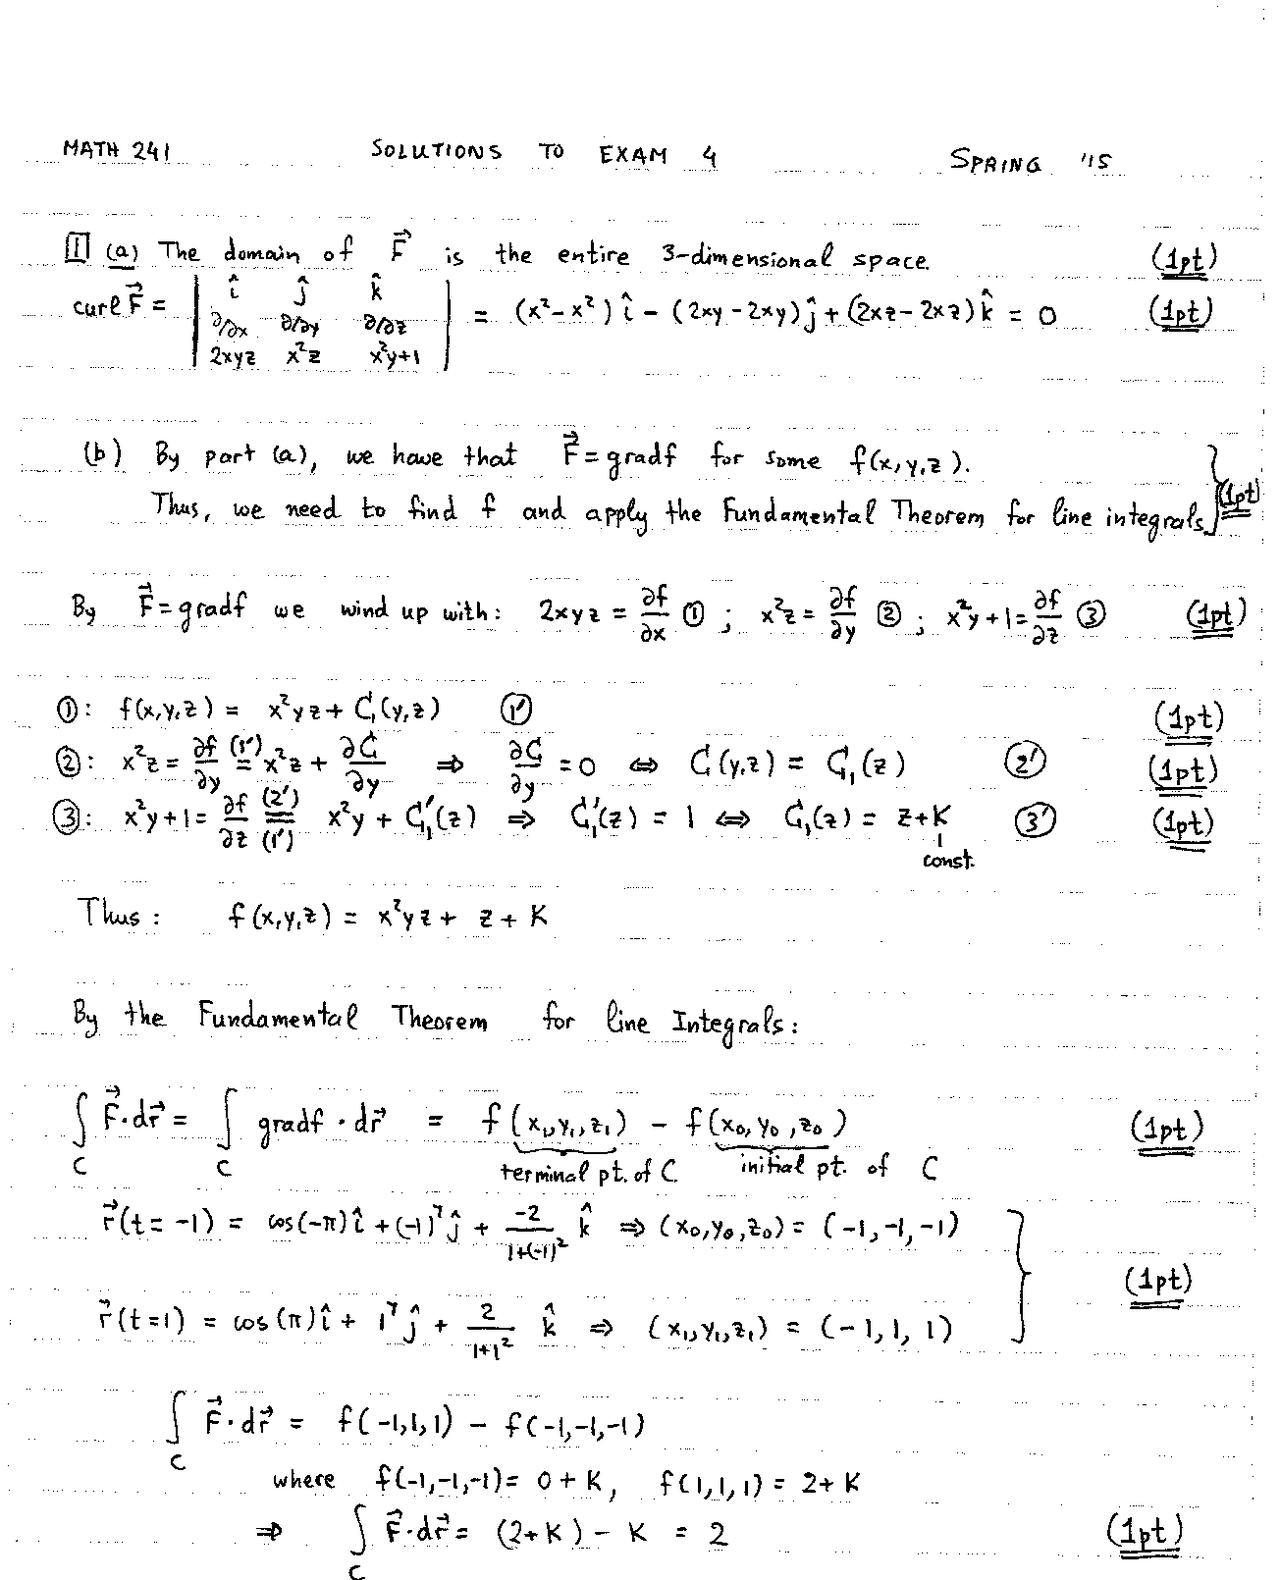 MATH 241 SOLUTIONS TO EXAM 4 SPRING '15
1 (a) The domain of F⃗ is the entire 3-dimensional space. (1pt)
curl F⃗ = | î ĵ k̂ ; ∂/∂x ∂/∂y ∂/∂z ; 2xyz x²z x²y+1 | = (x²-x²) î - (2xy-2xy) ĵ + (2xz-2xz) k̂ = 0 (1pt)
(b) By part (a), we have that F⃗ = gradf for some f(x,y,z).
Thus, we need to find f and apply the Fundamental Theorem for line integrals. (1pt)
By F⃗ = gradf we wind up with: 2xyz = ∂f/∂x ① ; x²z = ∂f/∂y ② ; x²y+1 = ∂f/∂z ③ (1pt)
①: f(x,y,z) = x²yz + C₁(y,z) (1') (1pt)
②: x²z = ∂f/∂y (1')= x²z + ∂C/∂y ⇒ ∂C/∂y = 0 ⇔ C(y,z) = C₁(z) (2') (1pt)
③: x²y+1 = ∂f/∂z (2')=(1') x²y + C₁'(z) ⇒ C₁'(z) = 1 ⇔ C₁(z) = z+K (3') (1pt)
const.
Thus: f(x,y,z) = x²yz + z + K
By the Fundamental Theorem for line Integrals:
∫_C F⃗·dr⃗ = ∫_C gradf · dr⃗ = f(x₁,y₁,z₁) - f(x₀,y₀,z₀) (1pt)
terminal pt. of C initial pt. of C
r⃗(t=-1) = cos(-π) î + (-1)⁷ ĵ + -2/(1+(-1)²) k̂ ⇒ (x₀,y₀,z₀) = (-1,-1,-1)
(1pt)
r⃗(t=1) = cos(π) î + 1⁷ ĵ + 2/(1+1²) k̂ ⇒ (x₁,y₁,z₁) = (-1,1,1)
∫_C F⃗·dr⃗ = f(-1,1,1) - f(-1,-1,-1)
where f(-1,-1,-1) = 0+K, f(1,1,1) = 2+K
⇒ ∫_C F⃗·dr⃗ = (2+K) - K = 2 (1pt)